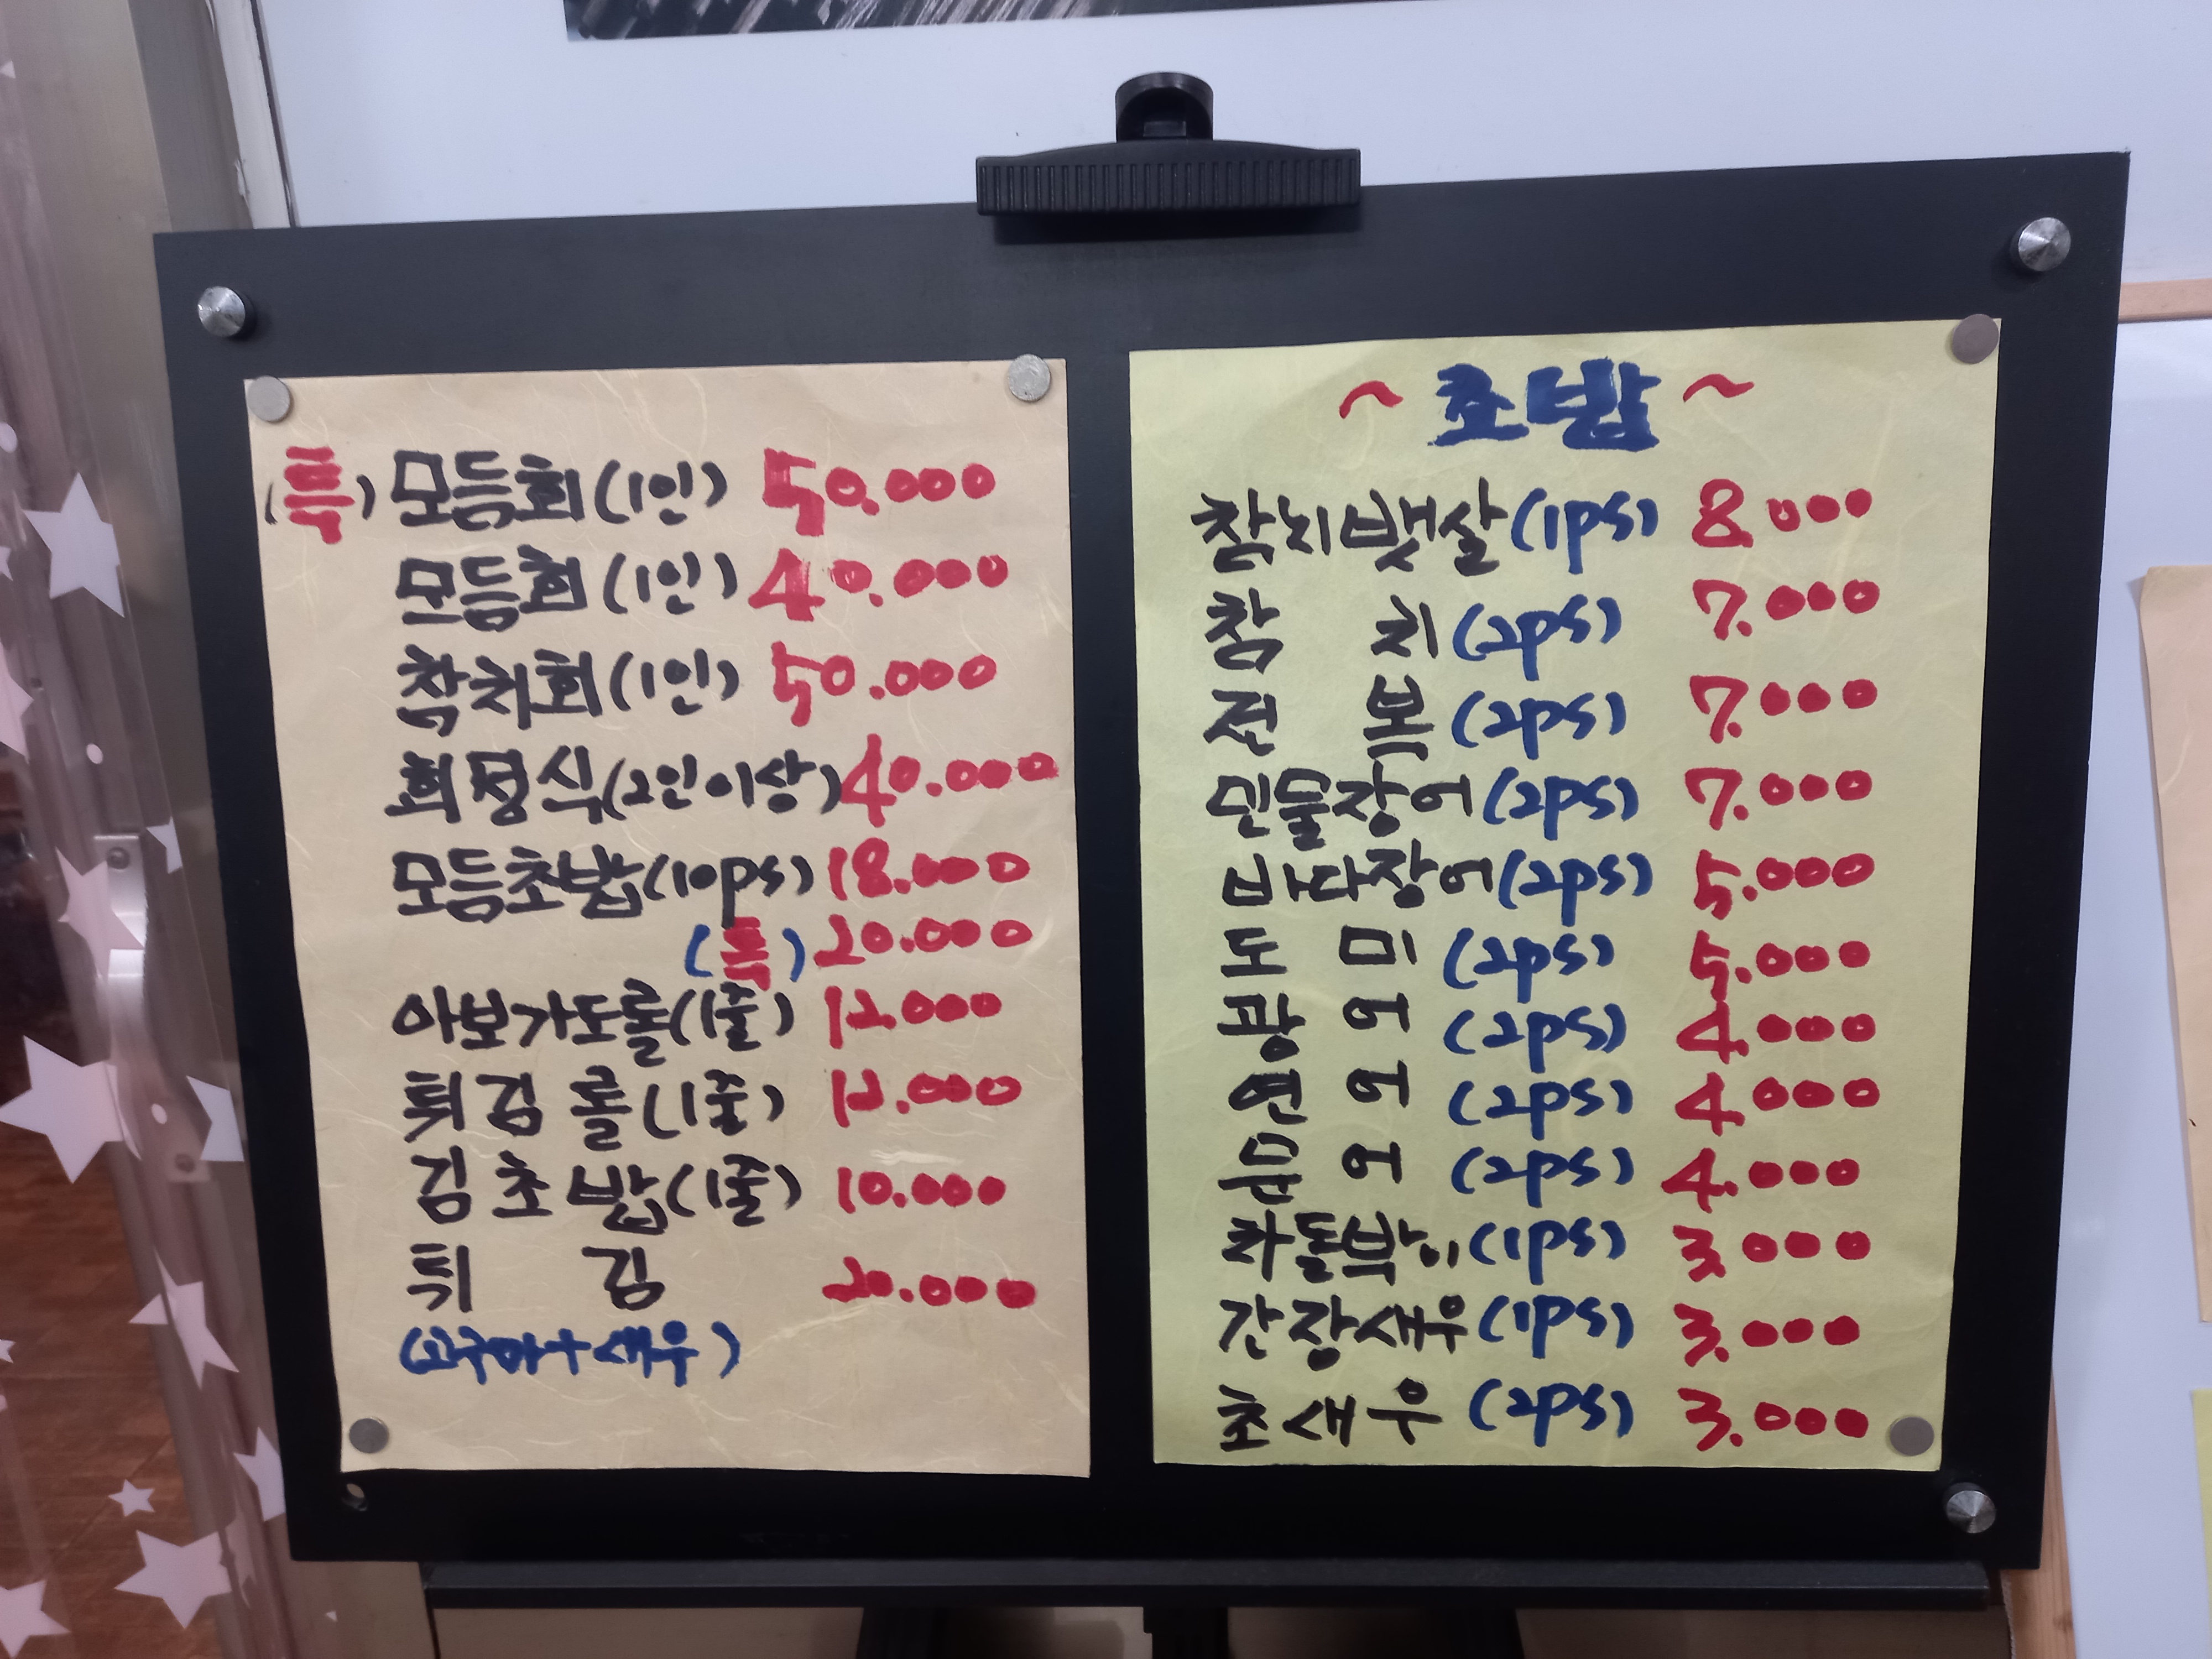 (특) 모듬회 (1인) 50.000
모듬회 (1인) 40.000
참치회 (1인) 50.000
회정식 (2인이상) 40.000
모듬초밥 (10ps) 18.000
(특) 20.000
아보가도롤 (1줄) 12.000
튀김롤 (1줄) 12.000
김초밥 (1줄) 10.000
튀김 20.000
(고구마+새우)
~ 초밥 ~
참치뱃살 (1ps) 8.000
참치 (2ps) 7.000
전복 (2ps) 7.000
민물장어 (2ps) 7.000
바다장어 (2ps) 5.000
도미 (2ps) 5.000
광어 (2ps) 4.000
연어 (2ps) 4.000
문어 (2ps) 4.000
차돌박이 (1ps) 3.000
간장새우 (1ps) 3.000
초새우 (2ps) 3.000